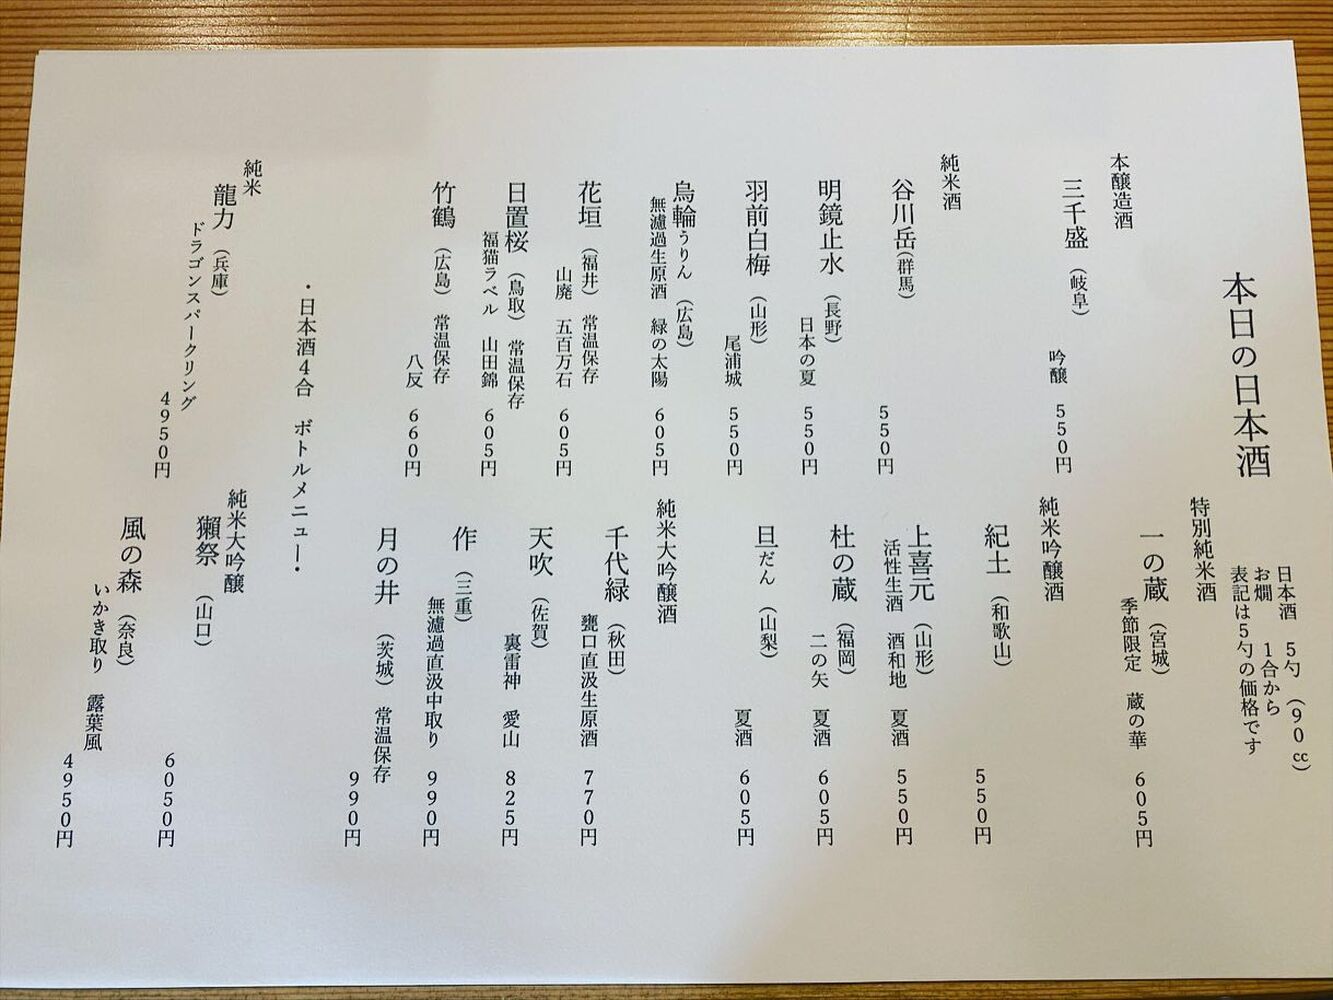 本日の日本酒
日本酒　5勺　(90㏄)
お燗　1合から
表記は5勺の価格です
本醸造酒
三千盛　(岐阜)
吟醸　550円
純米酒
谷川岳(群馬)
550円
明鏡止水　(長野)
日本の夏　550円
羽前白梅　(山形)
尾浦城　550円
烏輪うりん　(広島)
無濾過生原酒　緑の太陽　605円
花垣　(福井)　常温保存
山廃　五百万石　605円
日置桜　(鳥取)　常温保存
福猫ラベル　山田錦　605円
竹鶴　(広島)　常温保存
八反　660円
特別純米酒
一の蔵　(宮城)
季節限定　蔵の華　605円
純米吟醸酒
紀土　(和歌山)
550円
上喜元　(山形)
活性生酒　酒和地　夏酒　550円
杜の蔵　(福岡)
二の矢　夏酒　605円
旦だん　(山梨)
夏酒　605円
純米大吟醸酒
千代緑　(秋田)
甕口直汲生原酒　770円
天吹　(佐賀)
裏雷神　愛山　825円
作　(三重)
無濾過直汲中取り　990円
月の井　(茨城)　常温保存
990円
・日本酒4合　ボトルメニュー・
純米
龍力　(兵庫)
ドラゴンスパークリング
4950円
純米大吟醸
獺祭　(山口)
6050円
風の森　(奈良)
いかき取り　露葉風
4950円